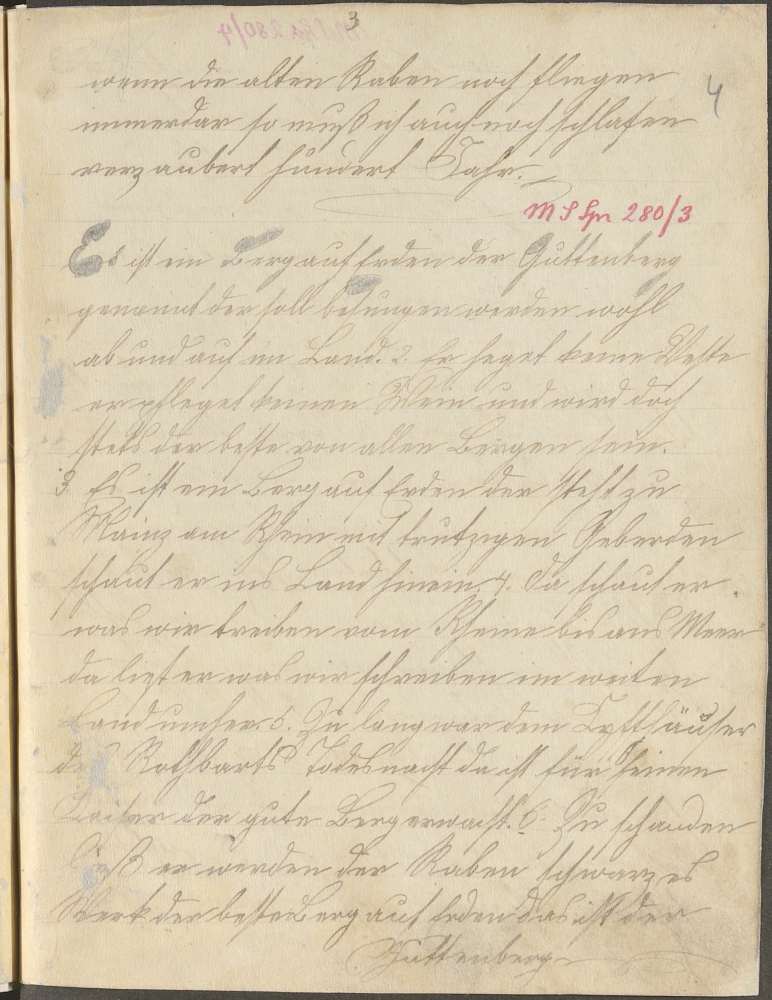 3
4
wenn die alten Raben noch fliegen
immerdar so muß ich auch noch schlafen
verzaubert hundert Jahr.
280/3
Es ist ein Berg auf Erden der Guttenberg
genannt der soll besungen werden wohl
ab und auf im Land. 2. Er heget keine Veste
er pfleget keinen Wein und wird doch
stets der beste von allen Bergen sein.
3 Es ist ein Berg auf Erden der steht zu
Mainz am Rhein mit trutzigen Geberden
schaut er ins Land hinein. 4. Da schaut er
was wir treiben vom Rheine bis ans Meer
da liest er was wir schreiben im weiten
Land umher. 5. Zu lang war dem Kyffhäuser
des Rothbarts Todesnacht da ist für seinen
Kaiser der gute Berg erwacht. 6. Zu schanden
ließ er werden der Raben schwarzes
Werk der beste Berg auf Erden das ist der
Guttenberg